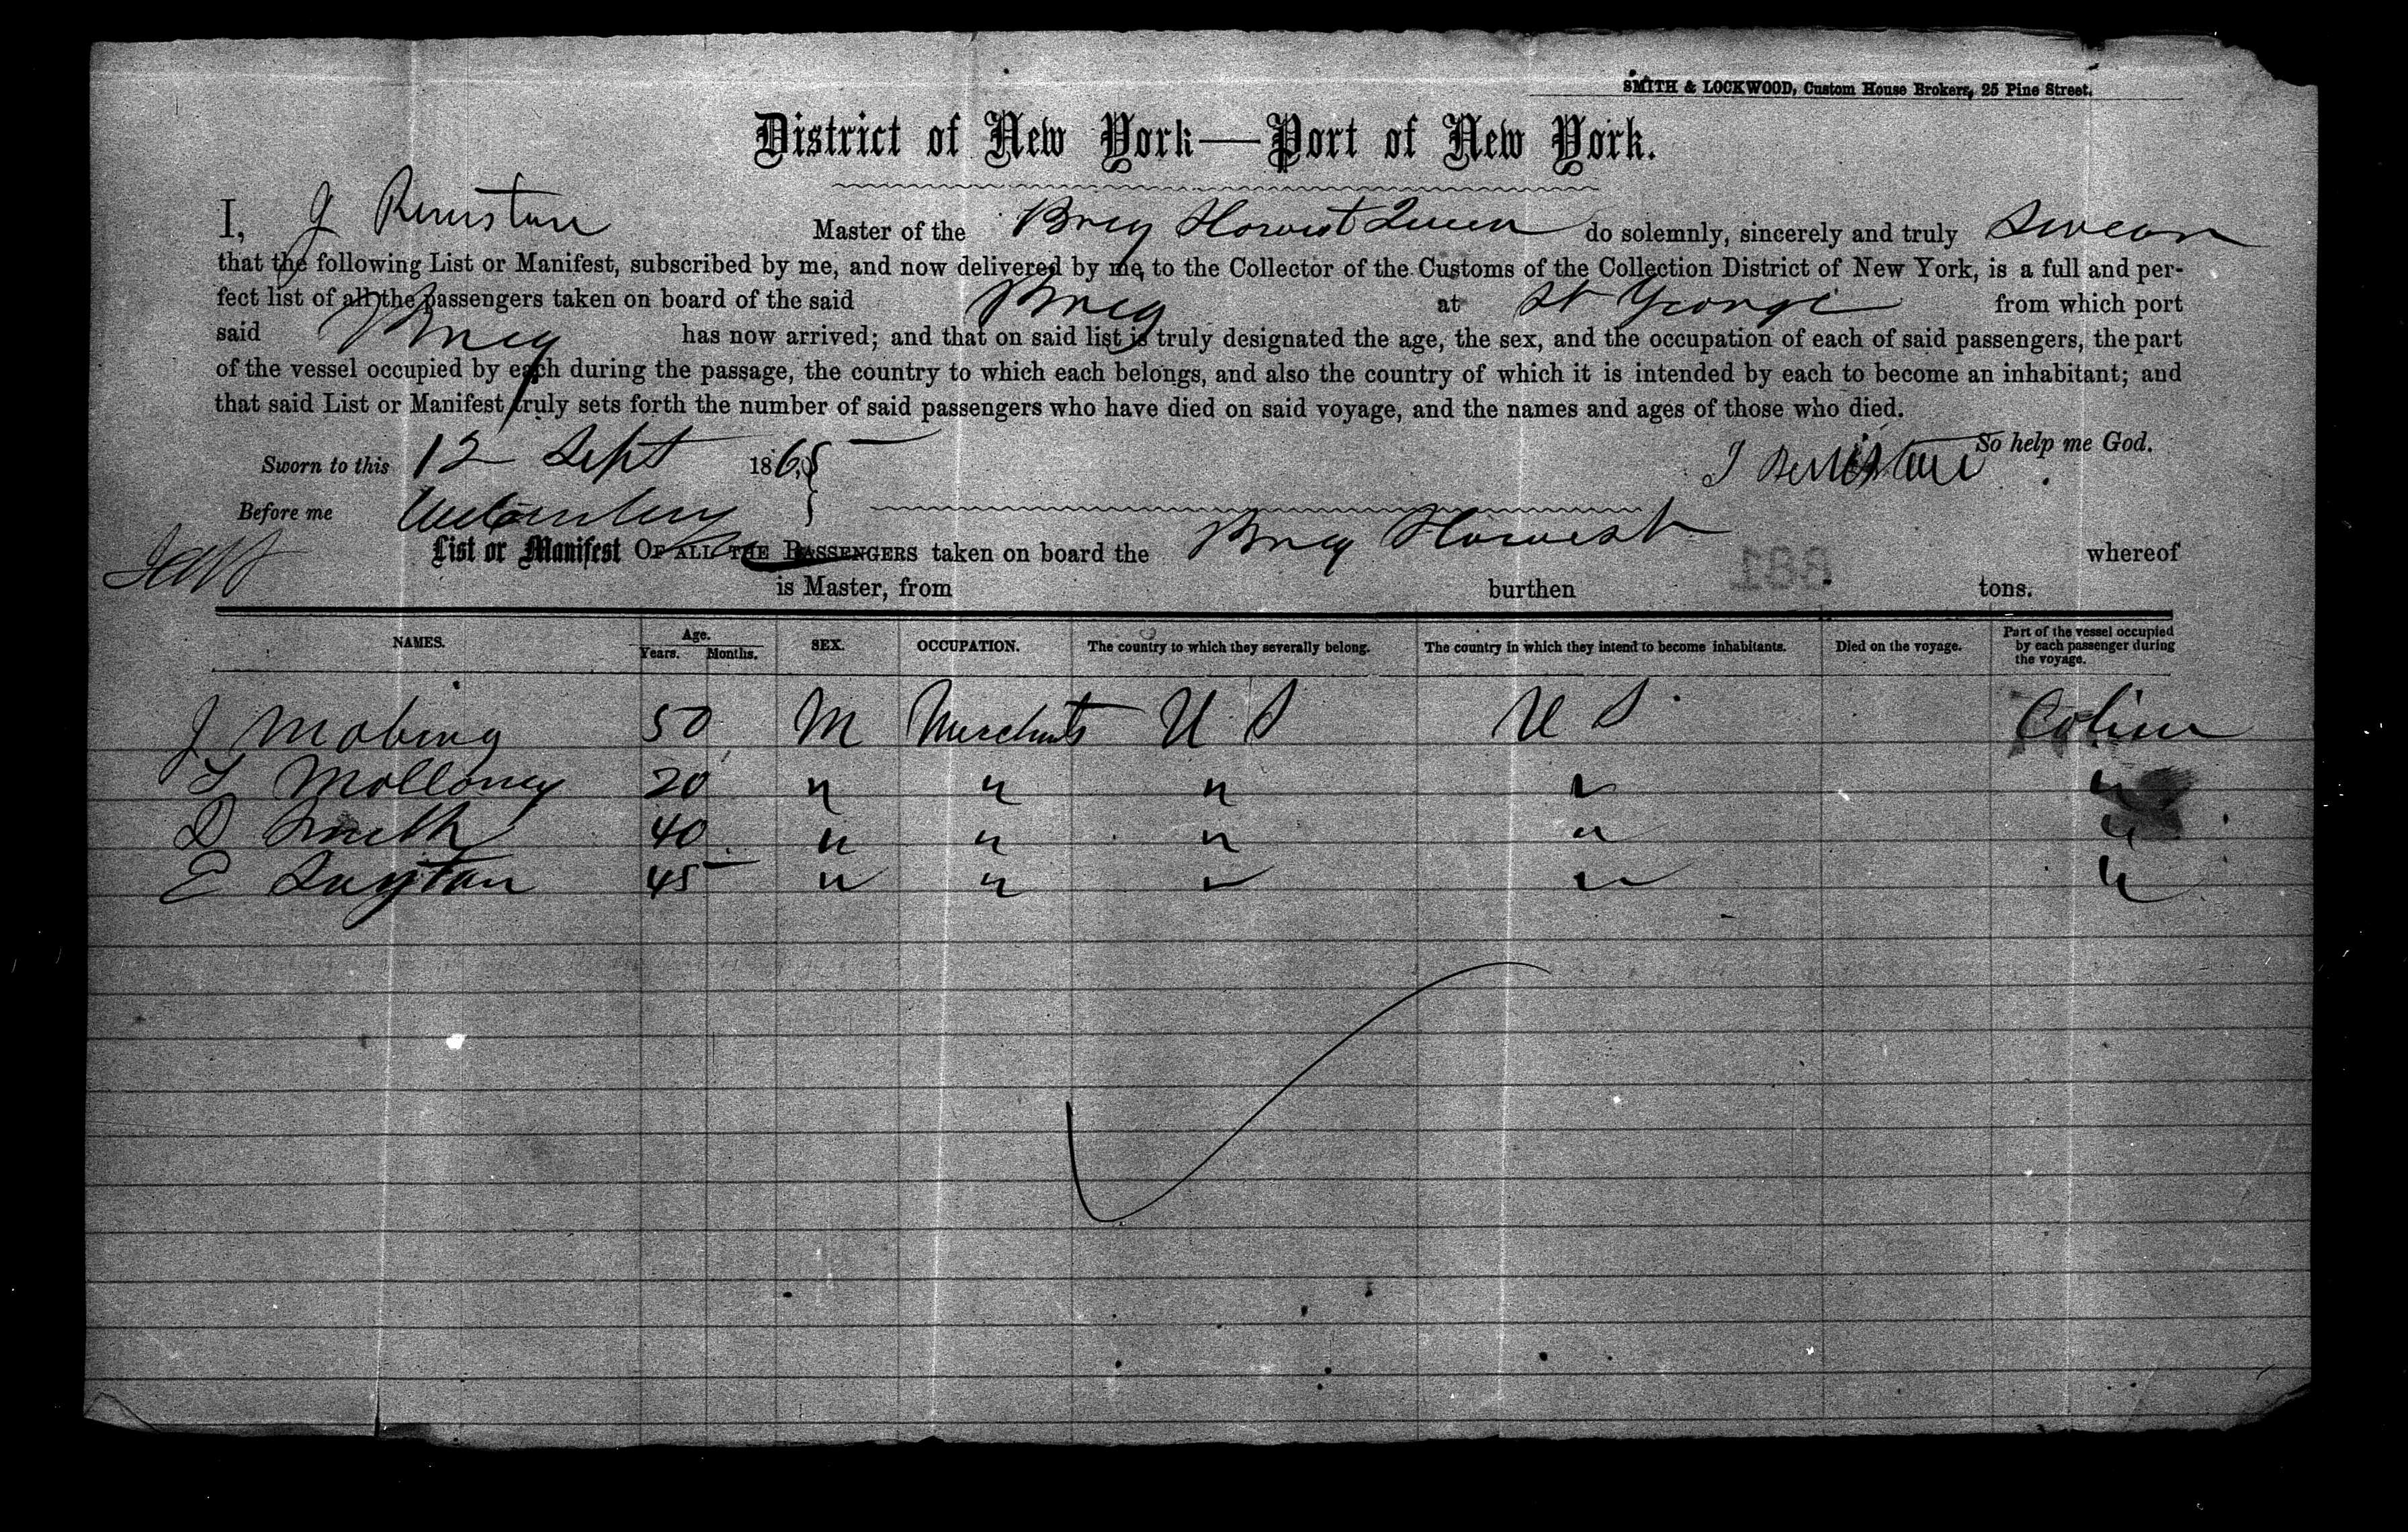 SMITH & LOCKWOOD, Custom House Brokers, 25 Pine Street.
District of New York—Port of New York.
I, J Master of the Brig Harvest Queen do solemnly, sincerely and truly Swear
that the following List or Manifest, subscribed by me, and now delivered by me, to the Collector of the Customs of the Collection District of New York, is a full and per-
fect list of all the passengers taken on board of the said Brig at St George from which port
said Brig has now arrived; and that on said list is truly designated the age, the sex, and the occupation of each of said passengers, the part
of the vessel occupied by each during the passage, the country to which each belongs, and also the country of which it is intended by each to become an inhabitant; and
that said List or Manifest truly sets forth the number of said passengers who have died on said voyage, and the names and ages of those who died.
So help me God.
Sworn to this 12 Sept 1865
Before me
List or Manifest OF ALL THE PASSENGERS taken on board the Brig Harvest whereof
is Master, from burthen tons.
881
NAMES. Age. Years. Months. SEX. OCCUPATION. The country to which they severally belong. The country in which they intend to become inhabitants. Died on the voyage. Part of the vessel occupied by each passenger during the voyage.
J Mabing 50 M Merchants U S U S Cabin
T Molloney 20 " " " " "
D Smith 40 " " " " "
E 45 " " " " "